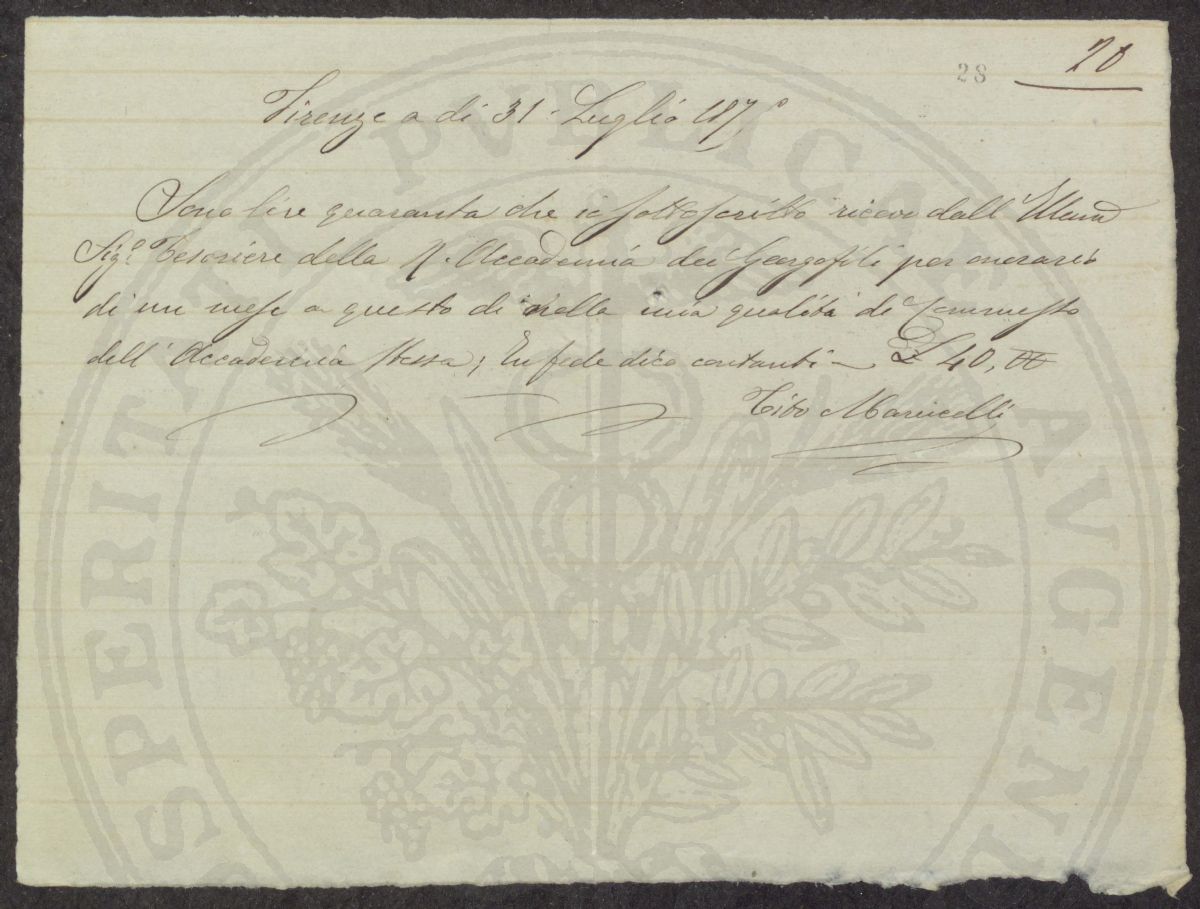 28 20
Firenze a dì 31 Luglio 187
Sono lire quaranta che io sottoscritto ricevo dall'
Sig.e Tesoriere della R. Accademia dei Georgofili per onorario
di un mese a questo dì nella mia qualità di Commesso
dell' Accademia stessa; In fede dico contanti — £ 40, 00
Tito Marucelli
PROSPERITATI PVBLICAE AVGENDAE